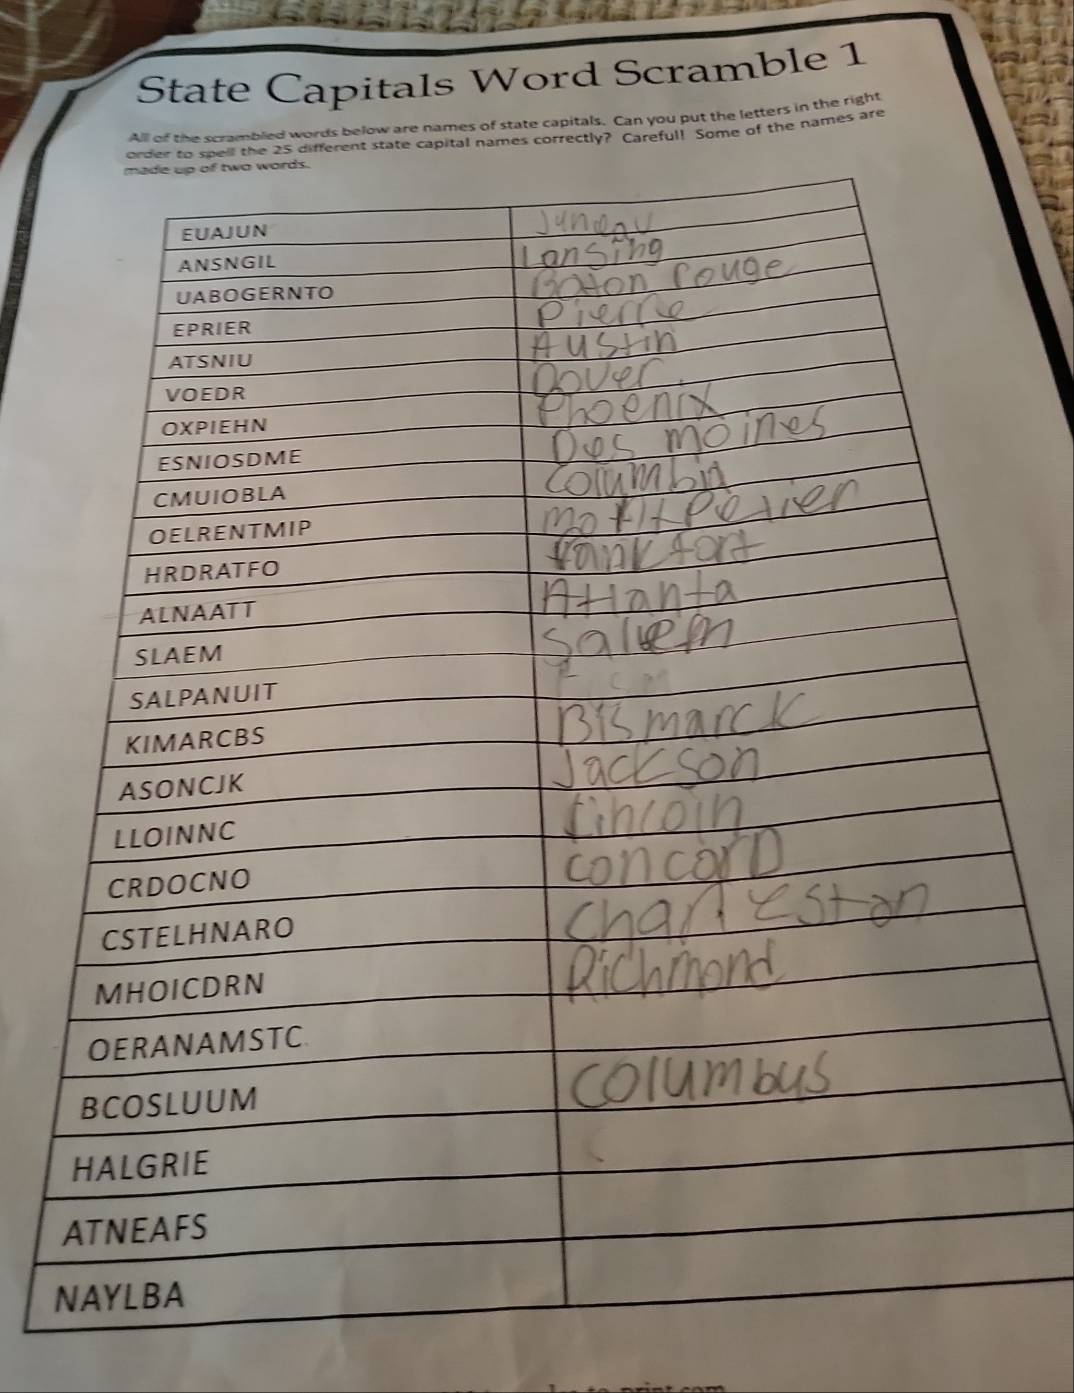 State Capitals Word Scramble 1
All of the scrambled words below are names of state capitals. Can you put the letters in the right
order to spell the 25 different state capital names correctly? Careful! Some of the names are
made up of two words.
EUAJUN Juneau
ANSNGIL Lansing
UABOGERNTO Baton rouge
EPRIER Pierre
ATSNIU Austin
VOEDR Dover
OXPIEHN Phoenix
ESNIOSDME Des moines
CMUIOBLA Columbia
OELRENTMIP montpelier
HRDRATFO
ALNAATT Atlanta
SLAEM Salem
SALPANUIT
KIMARCBS Bismarck
ASONCJK Jackson
LLOINNC Lincoln
CRDOCNO concorD
CSTELHNARO Charleston
MHOICDRN Richmond
OERANAMSTC
BCOSLUUM columbus
HALGRIE
ATNEAFS
NAYLBA